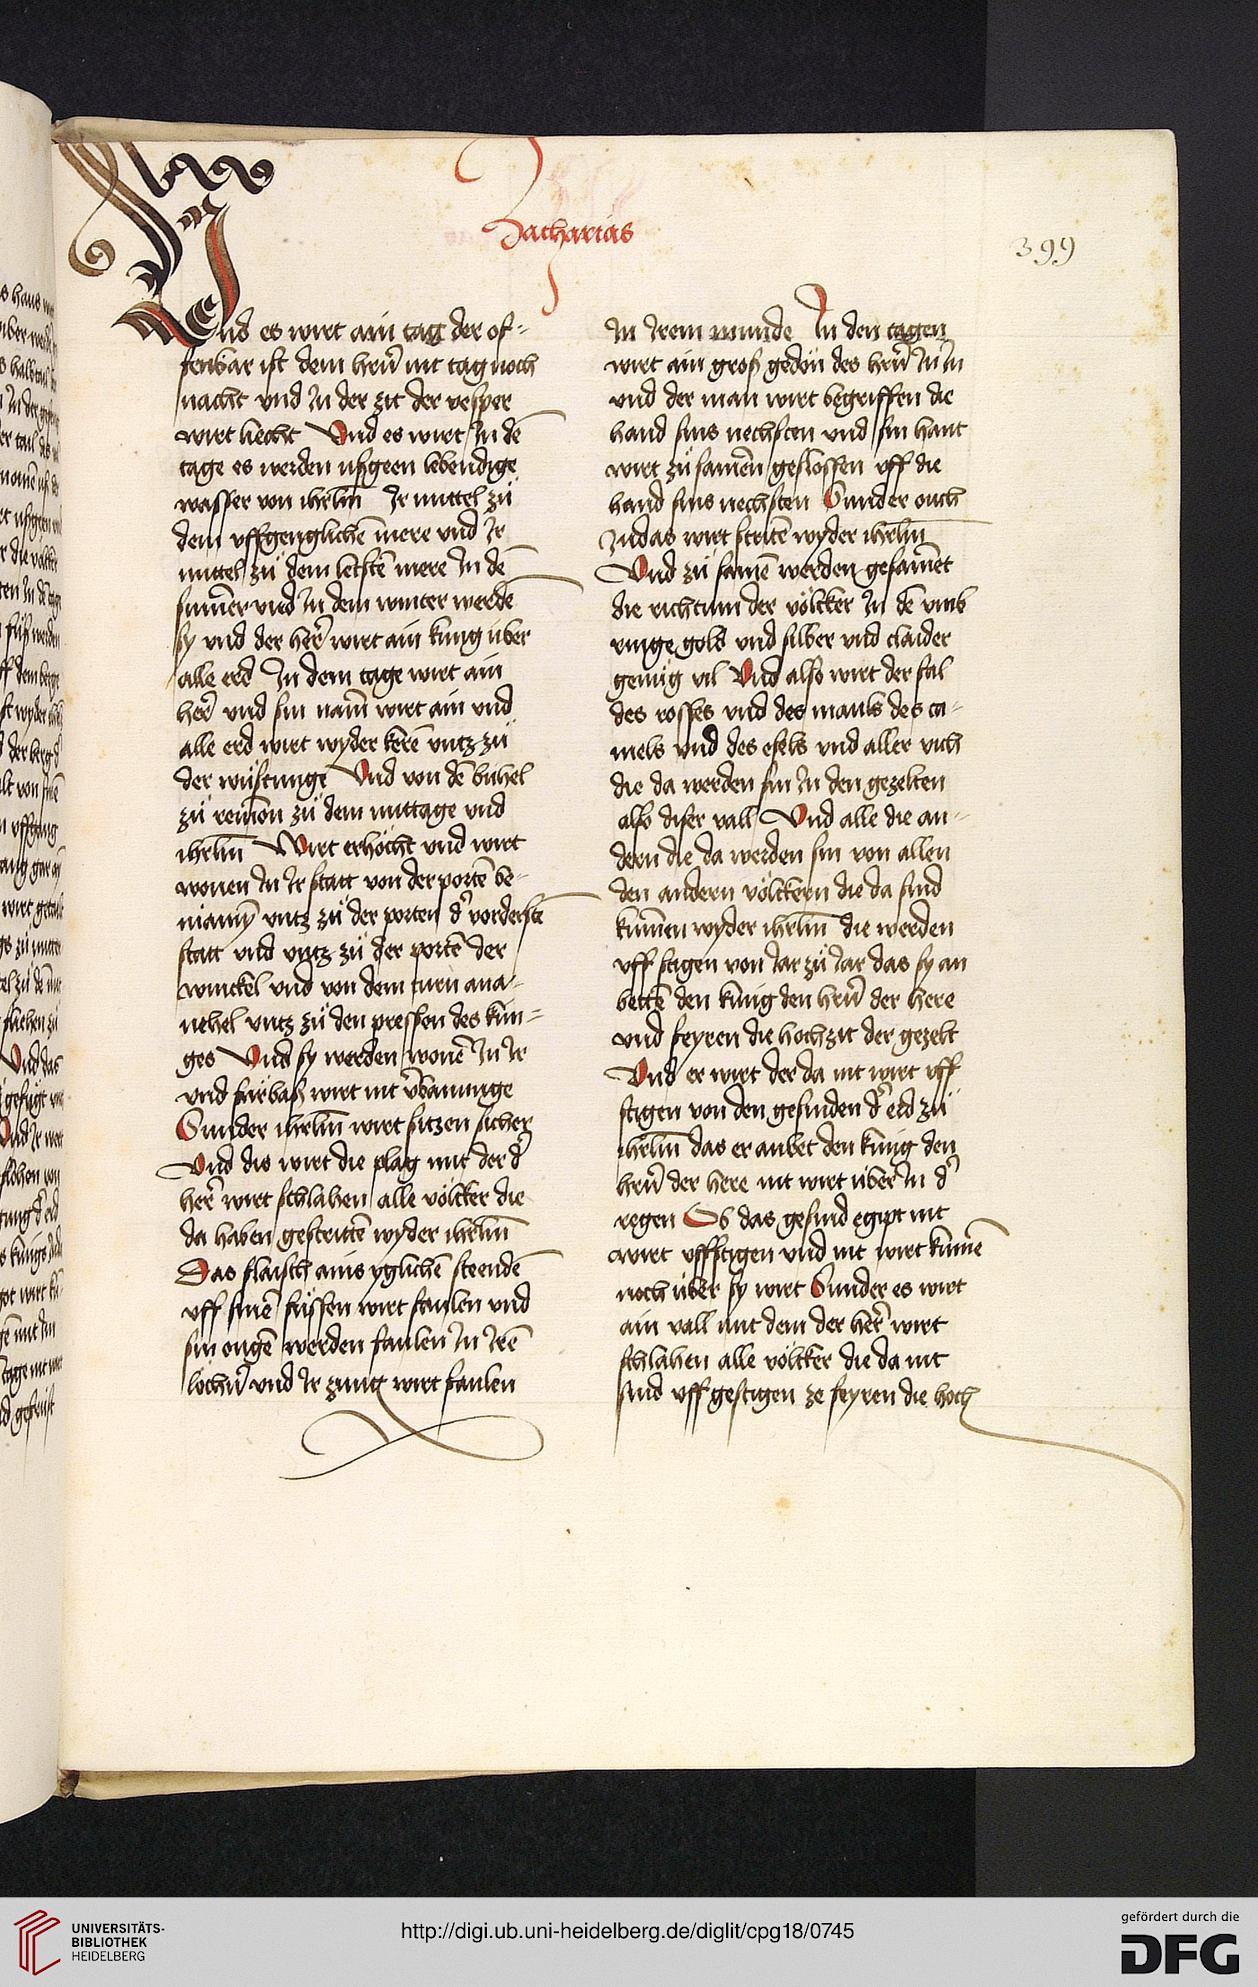 Zacharias
399
Und es wirt ain tag der of-
fenbar ist dem herñ nit tag noch
nacht vnd In der zit der vesper
wirt liecht Vnd es wirt In dē
tage es werden ußgeen lebendige
wasser von ihrlm̄ Ir mittel zü
dem vffgenglichē mere vnd Ir
mittel zü dem letstē mere In dē
summer vnd In dem winter werdē
sy vnd der her̄ wirt ain kung über
alle erd In dem tage wirt ain
her̄ vnd sin nam̄ wirt ain vnd
alle erd wirt wyder kerē vntz zü
der wüstunge Vnd von dē bühel
zü remmon zü dem mittage vnd
ihrlm̄ Wirt erhöcht vnd wirt
wonen In Ir statt von der portē be-
niamȳ vntz zü der porten dˀ vorderstē
statt vnd vntz zü der portē der
winckel vnd von dem turn ana-
nehel vntz zü den pressen des kün-
ges Vnd sy werden wonē In Ir
vnd fürbaß wirt nit v̄bannunge
Sunder ihrlm̄ wirt sitzen sicher
Vnd dis wirt die plag mit der dˀ
her̄ wirt schlahen alle völcker die
da haben gestrittē wyder ihrlm̄
Das flaisch ains yglichē steendē
vff sinē füssen wirt faulen vnd
sin ougē werden faulen In Irē
löchern̄ vnd Ir zung wirt faulen
In Irem munde In den tagen
wirt ain groß gedön des herñ In In
vnd der man wirt begriffen die
hand sins nechsten vnd sin hant
wirt zü samen geslossen vff die
hand sins nechsten Sunder ouch
Iudas wirt stritē wyder ihrlm̄
Vnd zü samē werden gesamet
die richtum der völcker In dē vmb
ringe gold vnd silber vnd claider
genüg vil Vnd also wirt der fal
des rosses vnd des mauls des ca-
mels vnd des esels vnd aller vich
die da werden sin In den gezelten
also diser vall Vnd alle die an-
dern die da werden sin von allen
den andern völckern die da sind
kummen wyder ihrlm̄ die werden
vff stigen von Iar zü Iar das sy an
bettē den küng den herñ der here
vnd feyren die hochzit der gezelt
Vnd er wirt der da nit wirt vff
stigen von den gesinden dˀ erd zü
ihrlm̄ das er anbet den küng den
herñ der here nit wirt über In dˀ
regen Ob das gesind egipt nit
wirt vffstigen vnd nit wirt kumē
noch über sy wirt Sunder es wirt
ain vall mit dem der her̄ wirt
schlahen alle völcker die da nit
sind vff gestigen ze feyren die hoch
UNIVERSITÄTS-
BIBLIOTHEK
HEIDELBERG
http://digi.ub.uni-heidelberg.de/diglit/cpg18/0745
gefördert durch die
DFG